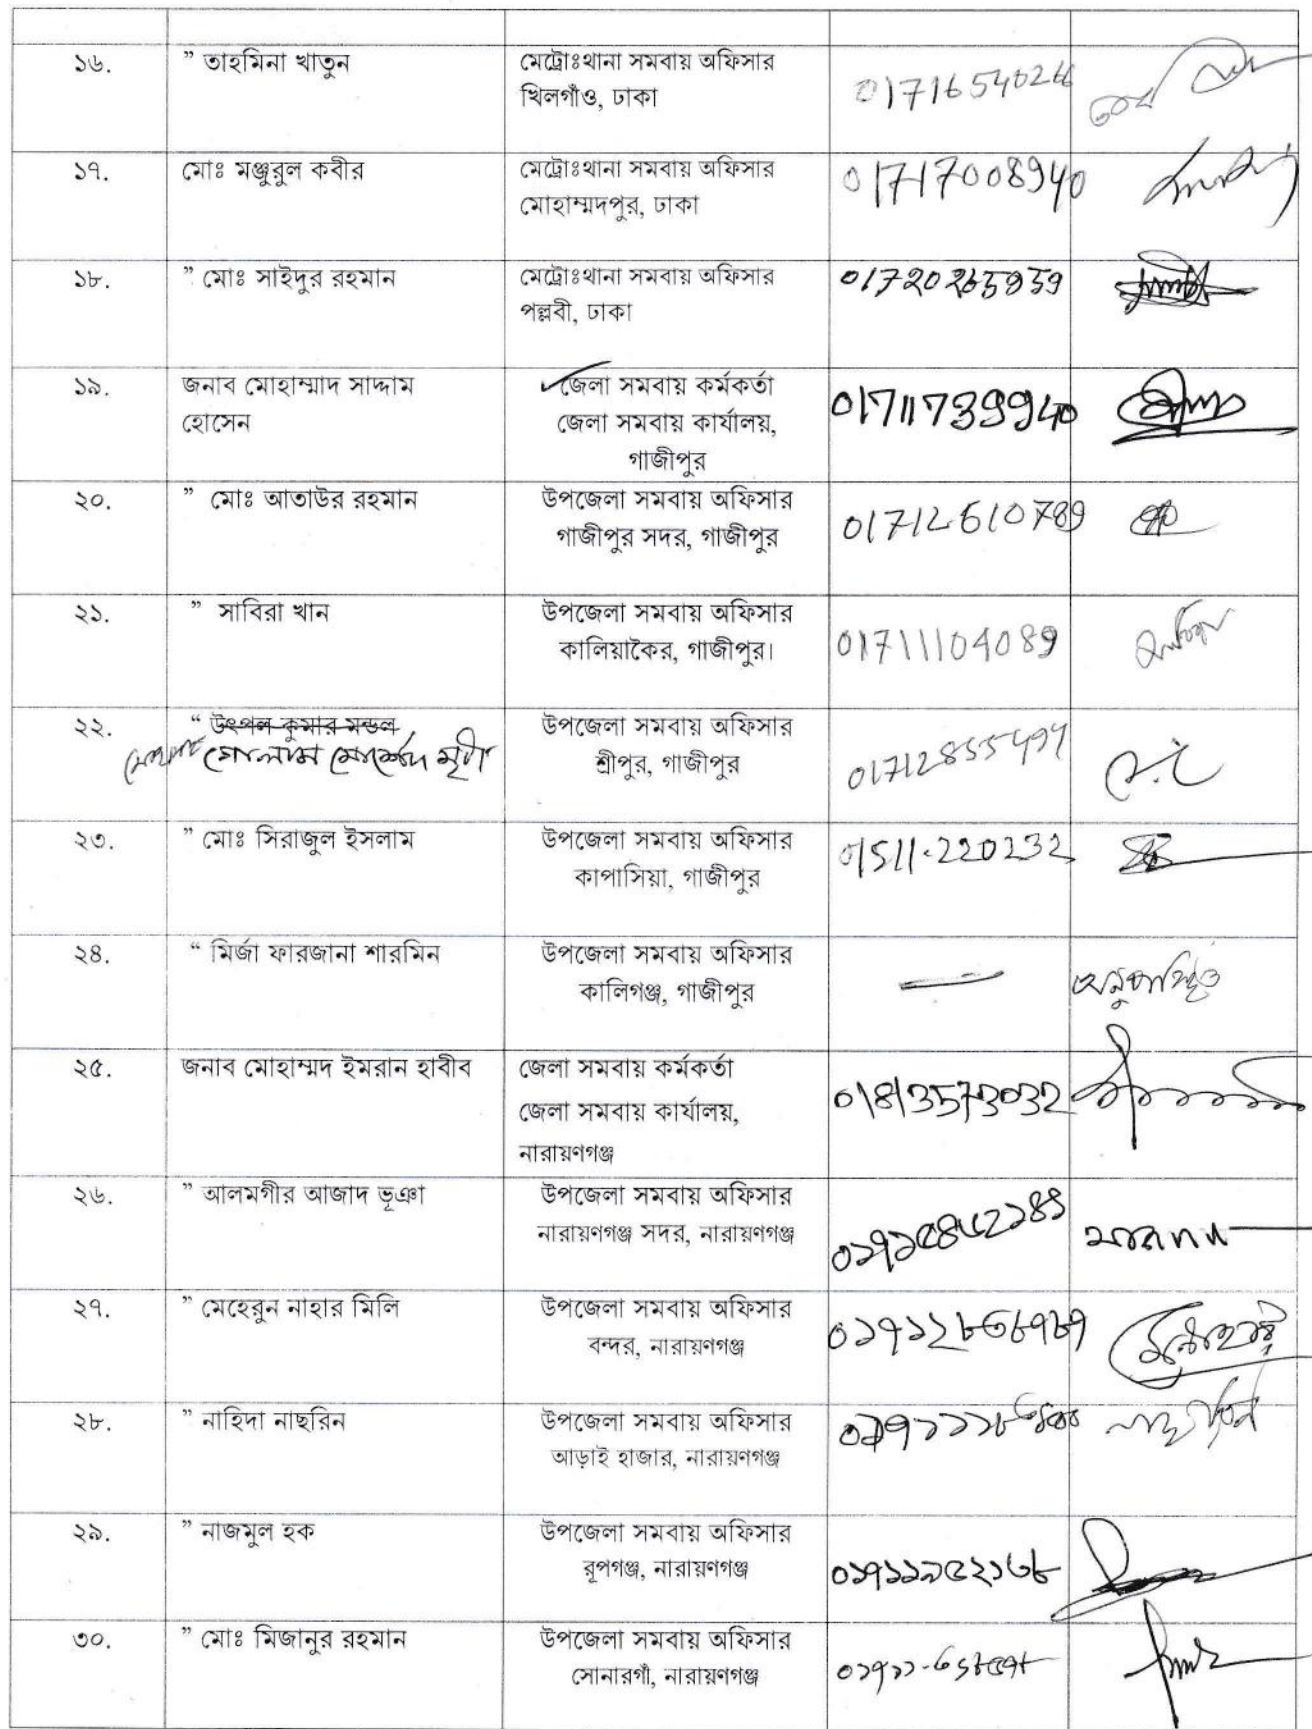 ১৬.
” তাহমিনা খাতুন
মেট্রোঃথানা সমবায় অফিসার
খিলগাঁও, ঢাকা
01716540266
১৭.
মোঃ মঞ্জুরুল কবীর
মেট্রোঃথানা সমবায় অফিসার
মোহাম্মদপুর, ঢাকা
01717008940
১৮.
” মোঃ সাইদুর রহমান
মেট্রোঃথানা সমবায় অফিসার
পল্লবী, ঢাকা
১৯.
জনাব মোহাম্মাদ সাদ্দাম
হোসেন
জেলা সমবায় কর্মকর্তা
জেলা সমবায় কার্যালয়,
গাজীপুর
01711739940
২০.
” মোঃ আতাউর রহমান
উপজেলা সমবায় অফিসার
গাজীপুর সদর, গাজীপুর
01712610789
২১.
” সাবিরা খান
উপজেলা সমবায় অফিসার
কালিয়াকৈর, গাজীপুর।
01711104089
২২.
“ উৎপল কুমার মন্ডল
গোলাম মোর্শেদ মৃধা
উপজেলা সমবায় অফিসার
শ্রীপুর, গাজীপুর
২৩.
” মোঃ সিরাজুল ইসলাম
উপজেলা সমবায় অফিসার
কাপাসিয়া, গাজীপুর
01511-220232
২৪.
“ মির্জা ফারজানা শারমিন
উপজেলা সমবায় অফিসার
কালিগঞ্জ, গাজীপুর
অনুপস্থিত
২৫.
জনাব মোহাম্মদ ইমরান হাবীব
জেলা সমবায় কর্মকর্তা
জেলা সমবায় কার্যালয়,
নারায়ণগঞ্জ
01813573032
২৬.
” আলমগীর আজাদ ভূঞা
উপজেলা সমবায় অফিসার
নারায়ণগঞ্জ সদর, নারায়ণগঞ্জ
২৭.
” মেহেরুন নাহার মিলি
উপজেলা সমবায় অফিসার
বন্দর, নারায়ণগঞ্জ
০১৭১২৮৬৮৭৮৭
২৮.
” নাহিদা নাছরিন
উপজেলা সমবায় অফিসার
আড়াই হাজার, নারায়ণগঞ্জ
২৯.
” নাজমুল হক
উপজেলা সমবায় অফিসার
রূপগঞ্জ, নারায়ণগঞ্জ
০১৭১১৯৫২১৬৮
৩০.
” মোঃ মিজানুর রহমান
উপজেলা সমবায় অফিসার
সোনারগাঁ, নারায়ণগঞ্জ